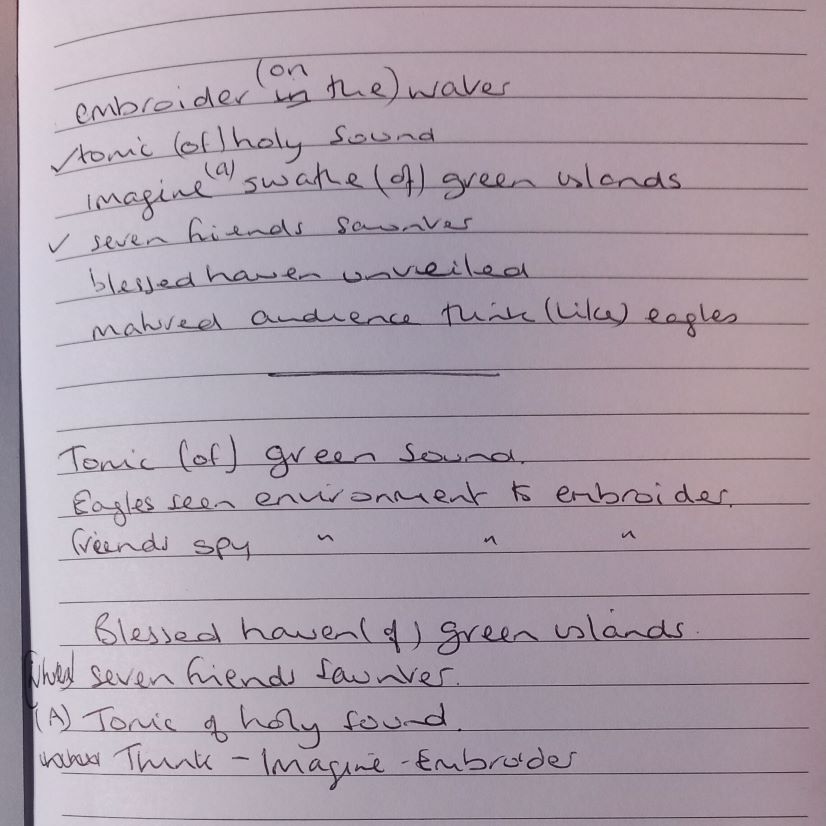 embroider (on in the) waves
✓tonic (of) holy sound
imagine (a) swathe (of) green islands
✓ seven friends saunter
blessed haven unveiled
matured audience think (like) eagles
Tonic (of) green sound.
Eagles seen environment to embroider.
friends spy " " "
Blessed haven (of) green islands.
seven friends saunter.
(A) Tonic of holy sound.
Think - Imagine - Embroider